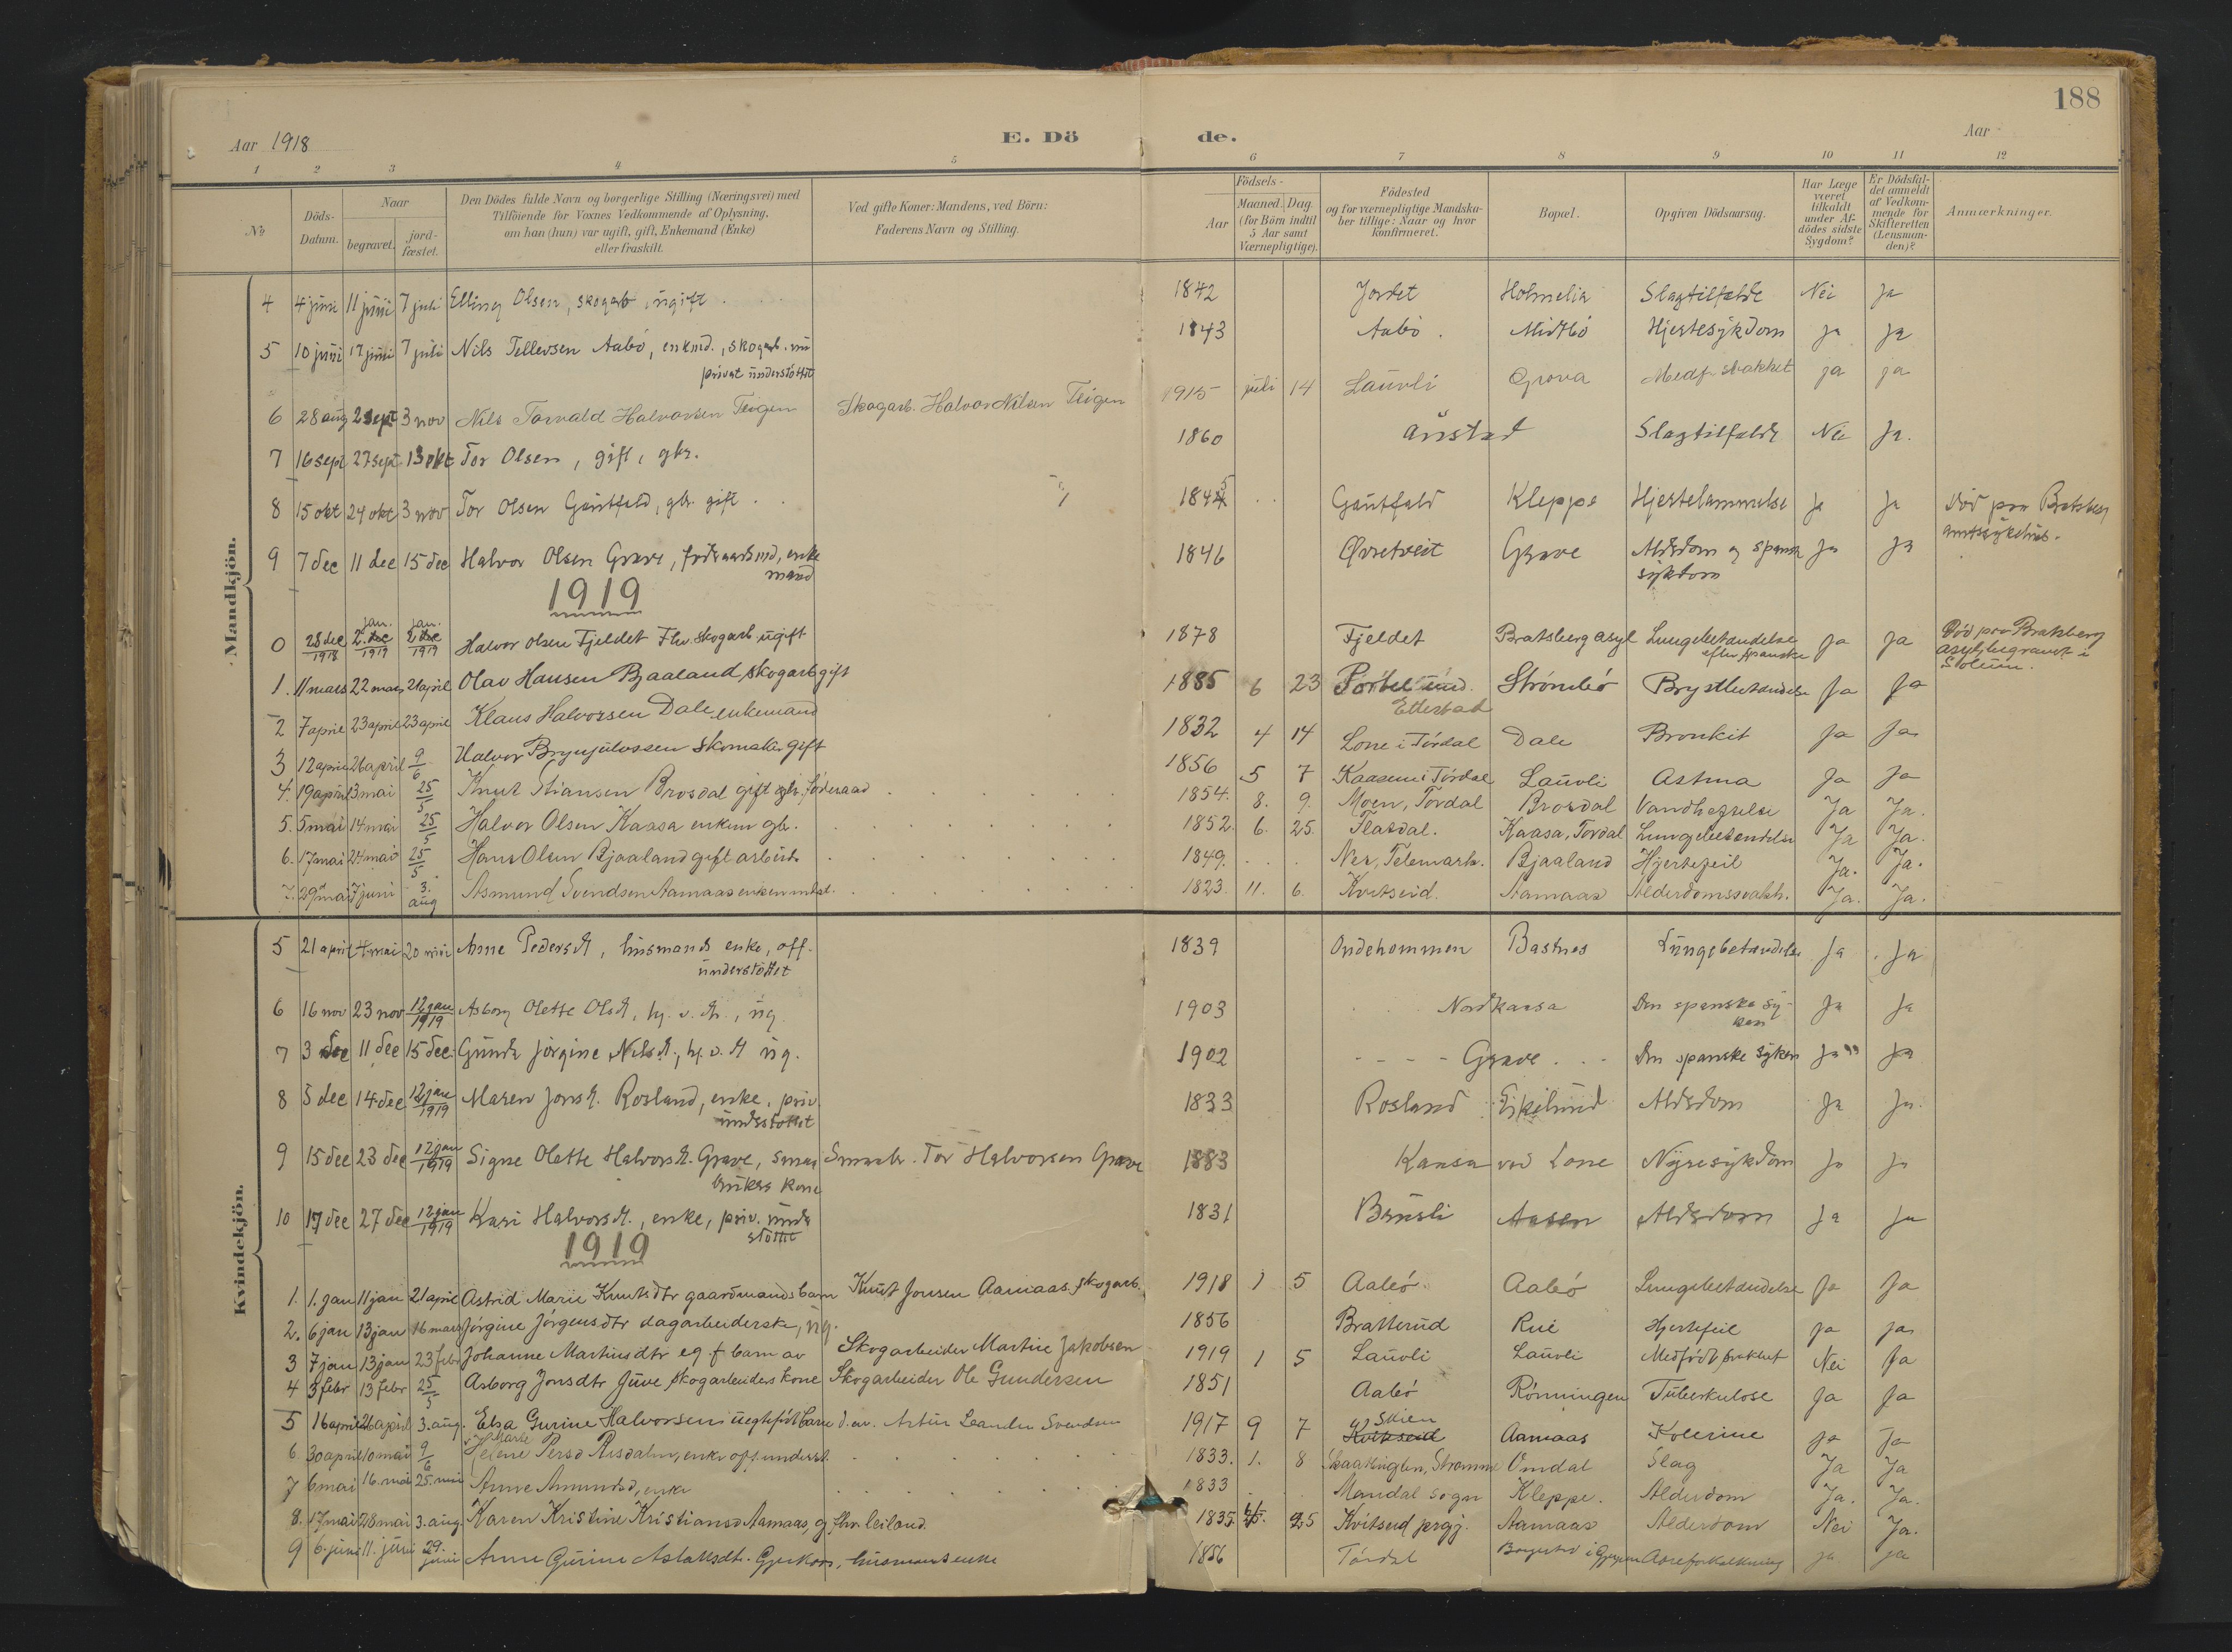 188
Aar 1918 E. Dö de. Aar
1 2 3 4 5 6 7 8 9 10 11 12
No
Döds-Datum.
Naar
begravet.
jord-fæstet.
Den Dödes fulde Navn og borgerlige Stilling (Næringsvei) med
Tilföiende for Voxnes Vedkommende af Oplysning,
om han (hun) var ugift, gift, Enkemand (Enke)
eller fraskilt.
Ved gifte Koner: Mandens, ved Börn:
Faderens Navn og Stilling.
Födsels-
Aar
Maaned. Dag.
(for Börn indtil
5 Aar samt
Værnepligtige).
Födested
og for værnepligtige Mandska-
ber tillige: Naar og hvor
konfirmeret.
Bopæl.
Opgiven Dödsaarsag.
Har Læge
været
tilkaldt
under Af-
dödes sidste
Sygdom?
Er Dödsfal-
det anmeldt
af Vedkom-
mende for
Skifteretten
(Lensman-
den)?
Anmærkninger.
Mandkjön.
4 4 juni 11 juni 7 juli Elling Olsen, skogarb, ugift 1842 Jordet Holmelia Slagtilfælde Nei Ja
5 10 juni 17 juni 7 juli Nils Tellevsen Aabö, enkmd., skogarb. nu 1843 Aabö Midtbö Hjertesykdom Ja Ja
privat understöttet
6 28 aug 2 sept 3 nov Nils Torvald Halvorsen Teigen Skogarb. Halvor Nilsen Teigen 1915 juli 14 Lauvli Grova Medf. svakhet ja ja
7 16 sept 27 sept 13 okt Tor Olsen, gift, gbr. 1860 Slagtilfælde Nei Ja.
8 15 okt 24 okt 3 nov Tor Olsen Gautfald, gbr. gift 1845 Gautfald Kleppe Hjertelammelse Ja Ja Död paa Bratsberg
amtssykehus.
9 7 dec 11 dec 15 dec Halvor Olsen Grave, föderaadsmd, enke 1846 Øvretveit Grave Aldrdom og spansk Ja Ja
mand sykdom
1919
0 28 dec 1918 2. jan. 1919 2 jan. 1919 Halvor Olsen Fjeldet Fhv. skogarb ugift 1878 Fjeldet Bratsberg asyl Lungebetændelse Ja Ja Död paa Bratsberg
efter spanske asyl, begravet i
Solum.
1. 11 mars 22 mars 21 april Olav Hansen Bjaaland, skogarb gift 1885 6 23 Strömbö Brystbetændelse Ja Ja
2 7 april 23 april 23 april Klaus Halvorsen Dale enkemand 1832 4 14 Lone i Tördal Dale Bronkit Ja Ja
3 12 april 26 april 9/6 Halvor Brynjulvssen skomaker gift 1856 5 7 Kaasene i Tördal Lauvli Astma Ja Ja
4. 19 april 3 mai 25/5 Knut Stiansen Brosdal gift gbr. föderaad 1854. 8. 9. Moen, Tördal Brosdal Vandhævelse Ja Ja.
5. 5 mai 14 mai 25/5 Halvor Olsen Kaasa enkem gbr. 1852. 6. 25. Flatdal. Kaasa, Tordal Lungebetændelse Ja Ja.
6. 17 mai 24 mai 25/5 Hans Olsen Bjaaland gift arbeider 1849. Nes, Telemark. Bjaaland Hjertefeil Ja. Ja.
7. 29 mai 7 juni 3. aug Asmund Svendsen Aamaas enkem 1823. 11. 6. Kvitseid. Aamaas Alderdomssvakh. Ja. Ja.
Kvindekjön.
5 21 april 4 mai 20 mai Anne Pedersdt, husmands enke, off. 1839 Ondehommen Bastnes Lungebetændelse Ja Ja
understöttet
6 16 nov 23 nov 12 jan 1919 Asborg Olette Olsdt, hj. v. dt., ug. 1903 Nordkaasa Den spanske sy- Ja Ja
ken
7 3 dec 11 dec 15 dec. Gunda Jörgine Nilsdt., hj. v. dt ug. 1902 Grave Den spanske syken Ja Ja
8 5 dec 14 dec 12 jan 1919 Maren Jonsdt. Rosland, enke, priv. 1833 Rosland Eikelund Aldrdom Ja Ja
understöttet
9 15 dec 23 dec 12 jan 1919 Signe Olette Halvorsdt. Grave, smaa Smaabr. Tor Halvorsen Grave 1883 Kaasa ved Lone Nyresykdom Ja Ja
brukers kone
10 17 dec 27 dec 12 jan 1919 Kari Halvorsdt., enke, priv. under 1831 Brusli Aasen Aldrdom Ja Ja
stöttet
1919
1. 1. jan 11 jan 21 april Astrid Marie Knutsdtr gaardmands barn Knut Jonsen Aamaas, skogarb. 1918 1 5 Aabö Aabö Lungebetændelse Ja Ja
2. 6 jan 13 jan 16 mars Jörgine Jörgensdtr dagarbeiderske, ug. 1856 Bratterud Rui Hjertefeil Ja Ja
3 7 jan 13 jan 23 febr Johanne Martinsdtr eg. f barn av Skogarbeider Martin Jakobsen 1919 1 5 Lauvli Lauvli Medfödt svakhet Nei Ja
4 3 febr 13 febr 25/5 Asborg Jonsdtr Juve skogarbeiders kone Skogarbeider Ole Gundersen 1851 Aabö Rönningen Tuberkulose Ja Ja
5 16 april 26 april 3. aug. Elsa Gurine Halvorsen uegtefödt barn d. av. Artur Leander Svendsen 1917 9 7 Skien Kvitseid Aamaas Kolerine Ja Ja
6. 30 april 10 mai 9/6 Helene Marie Persd Risdalen, enke off. underst. 1833. 1. 8 Omdal Slag Ja Ja
7 6 mai 16. mai 25. mai Anne Amundsd, enke 1833 Mandal sogn Kleppe. Alderdom Ja. Ja.
8. 17 mai 28 mai 3. aug Karen Kristine Kristiansd Aamaas, g. fhv. leiland. 1835. 25 Kvitseid prgj. Aamaas Alderdom Nei Ja.
9 6. juni 11. juni 29. juni Anne Gurine Aslaksdtr. Gjerkaas, husmans enke 1856 Tördal Aareforkalkning Ja Ja